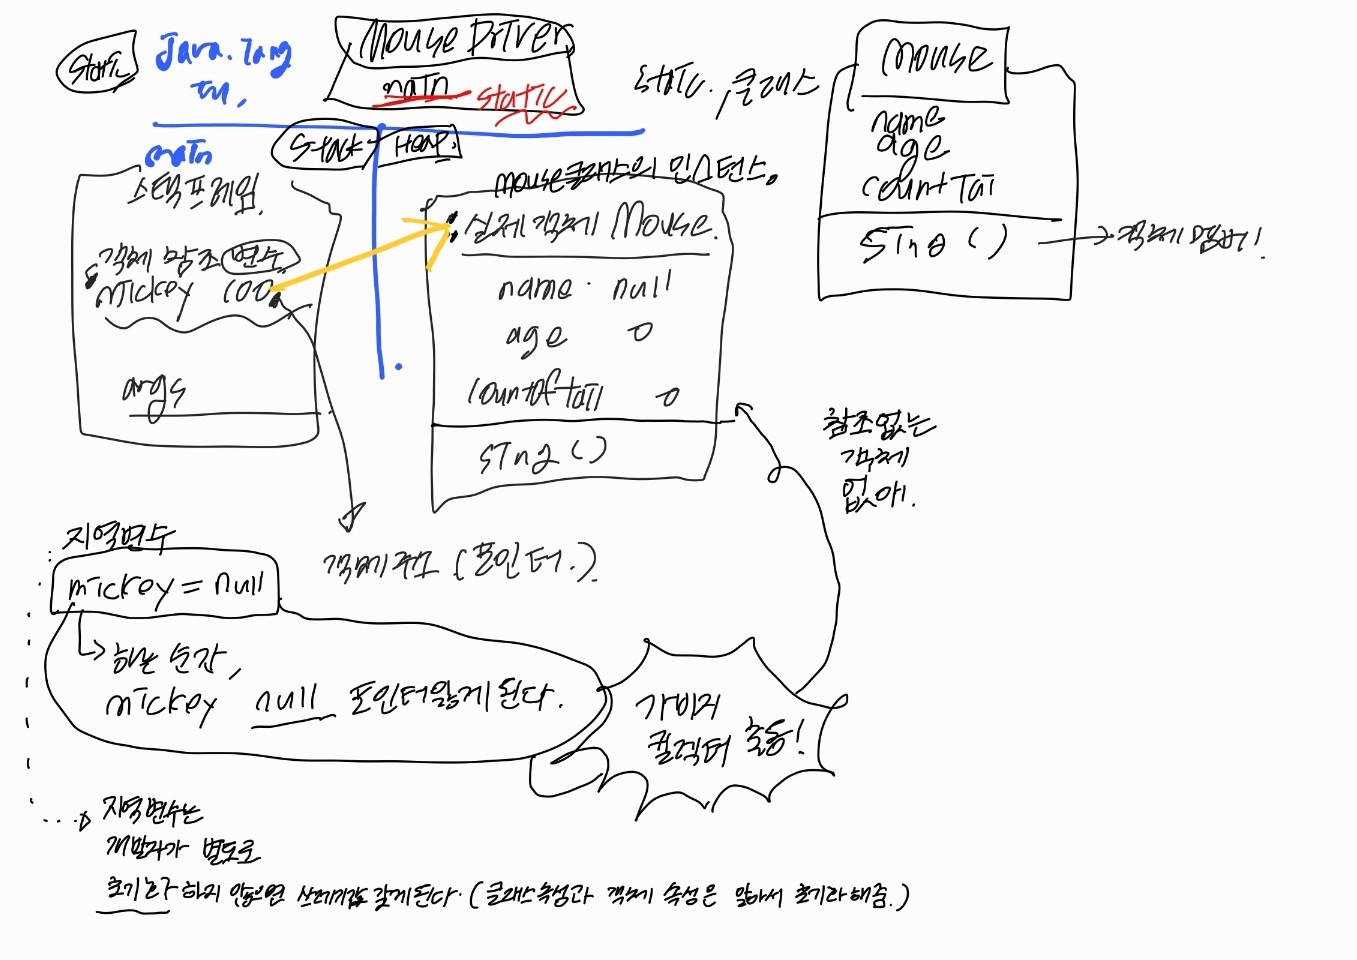 Static
Java.lang
Mouse Driver
main static
static, 클래스
Mouse
name
age
countTai
sing ( ) 객체 멤버!
Stack Heap.
main
스택프레임.
객체 참조 변수
mickey 100
args
mouse클래스의 인스턴스.
실제 객체 Mouse.
name null
age 0
countOfTail 0
sing ( )
참조 없는
객체
없애!
객체 주소 (포인터.)
지역변수
mickey = null
하는 순간,
mickey null 포인터 갖게 된다.
가비지
컬렉터 출동!
지역변수는
개발자가 별도로
초기화 하지 않으면 쓰레기값 갖게된다. (클래스 속성과 객체 속성은 알아서 초기화 해줌.)